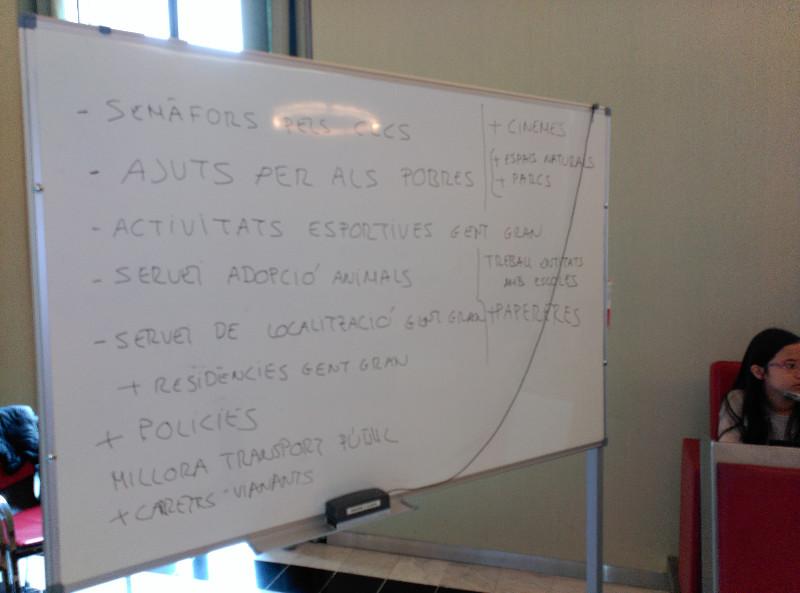 - SEMÀFORS PELS CECS
- AJUTS PER ALS POBRES
- ACTIVITATS ESPORTIVES GENT GRAN
- SERVEI ADOPCIÓ ANIMALS
- SERVEI DE LOCALITZACIÓ GENT GRAN
+ RESIDÈNCIES GENT GRAN
+ POLICIES
MILLORA TRANSPORT PÚBLIC
+ VIANANTS
+ CINEMES
+ ESPAIS NATURALS
+ PARCS
TREBALL ENTITATS
AMB ESCOLES
+ PAPERERES